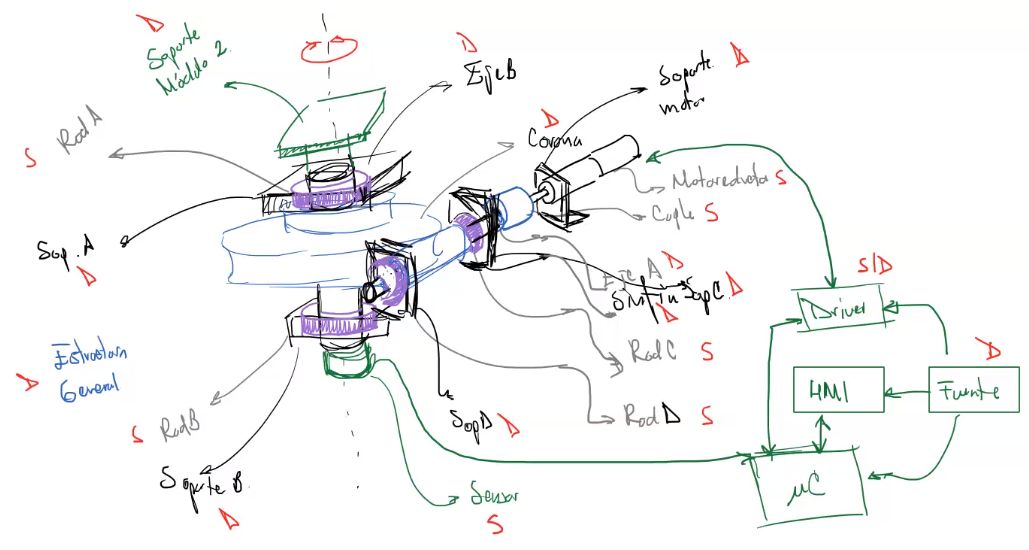 D
Soporte
Módulo 2.
D
Eje B
Soporte
motor
D
S
Rod A
D
Corona
Motoreductor S
Cople S
Sop. A
D
Eje A D
Sop C. D
D
S/D
Driver
D
Estructura
General
D
Rod C S
HMI
Fuente
Rod D S
Sop D D
S Rod B
Soporte B.
D
Sensor
S
µC